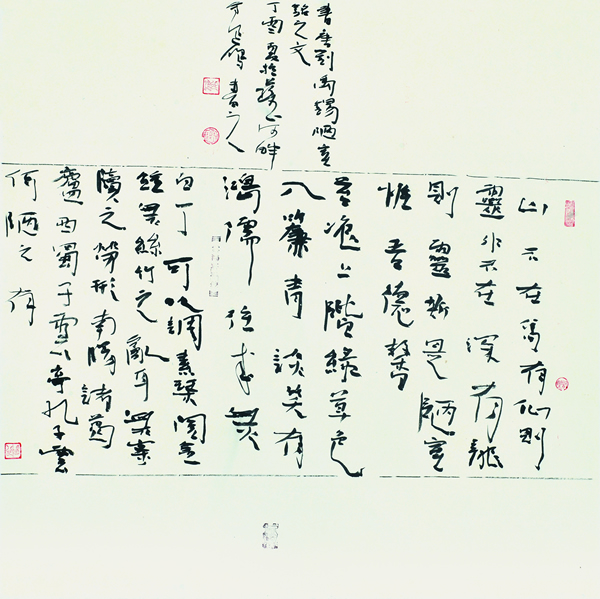 書唐劉禹錫陋室
銘之文
丁酉夏於河畔
山不在高有仙則
靈水不在深有龍
則靈斯是陋室
惟吾德馨
苔痕上階綠草色
入簾青談笑有
鴻儒往来無
白丁可以調素琴閱金
經無絲竹之亂耳無案
牘之勞形南陽諸葛
廬西蜀子雲亭孔子雲
何陋之有